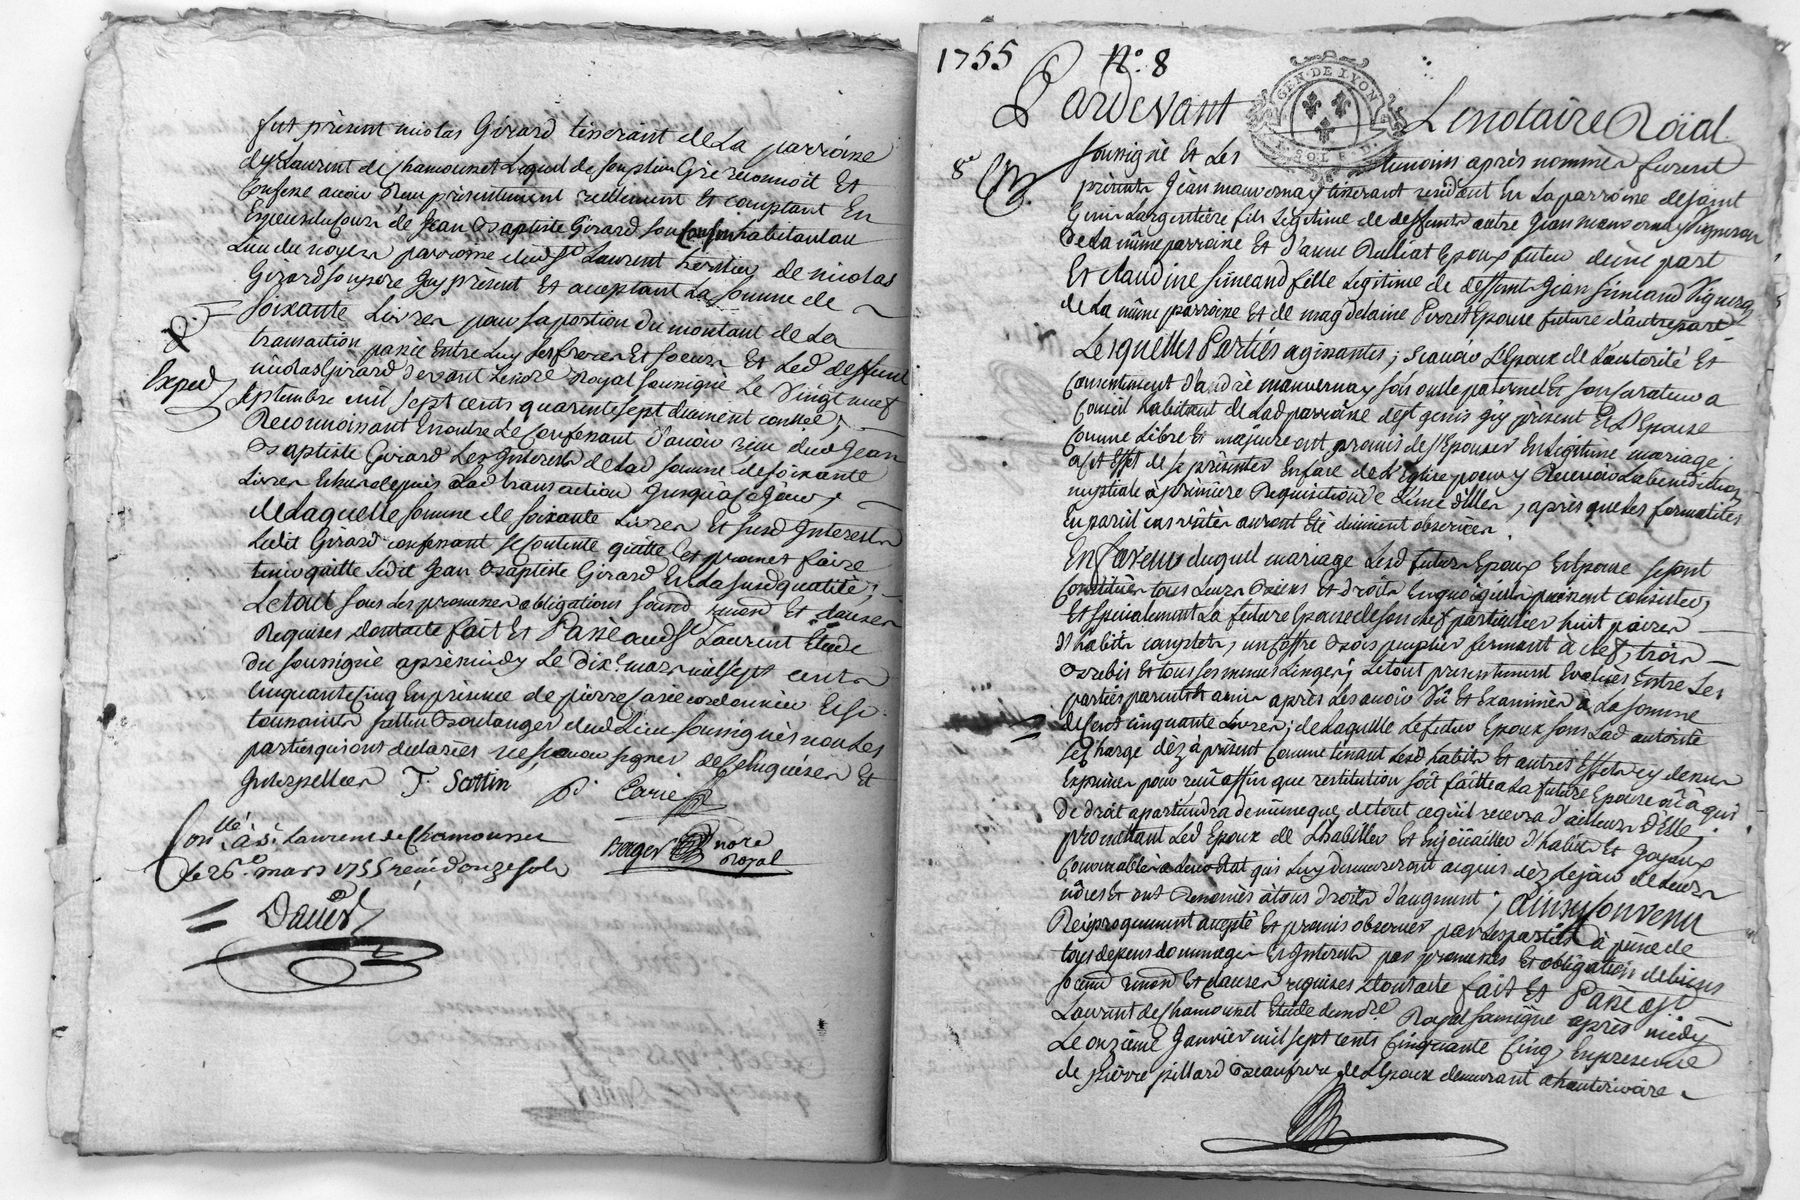 fut présent nicolas Girard tisserant de La parroisse
de St Laurent de chamousset Lequel de son plein Gré reconnoit Et
Confesse avoir Reçu présentement réellement Et comptant En
Especes du Cours de Jean Baptiste Girard son Cousin habitant au
Lieu du noyer parroisse dud St Laurent héritier de nicolas
Girard son père Icy présent Et acceptant La Somme de
Soixante Livres pour Sa portion du montant de La
transaction passée Entre Luy Ses freres Et Soeurs Et Led deffunt
nicolas Girard devant Le nore Royal Soussigné Le Vingt neuf
Exped
Septembre mil sept cents quarente sept duement conllée,
Reconnoissant En outre Le Confessant d'avoir reçu dud Jean
Baptiste Girard Les Interests de Lad Somme de soixante
Livres Echus depuis Lad transaction Jusqu'à ce jour,
de Laquelle Somme de soixante Livres Et susd Interests
Ledit Girard confessant se Contente quitte Et promet faire
tenir quitte Ledit Jean Baptiste Girard En La Susd qualité;
Le tout Sous Les promesses obligations soumd renond Et clauses
Requises dont acte fait Et Passé aud St Laurent Etude
du soussigné après midy Le dix mars mil sept cents
Cinquante Cinq En présence de pierre Carie cordonnier Et
toussaints sottin Boulanger dud Lieu soussignés non Les
parties qui ont declarées ne sçavoir signer de ce Enquises Et
Interpellées T. Sottin P. Carie
Conllé à St Laurent de Chamousset
Berger nore
Royal
Le 26e mars 1755 reçu douze sols
David
1755 No. 8
GEN. DE LYON
Pardevant Le notaire Roïal
8e
Soussigné Et Les temoins après nommés furent
présents Jean mauvernay tisserant residant En La parroisse de saint
Genis Largentière fils Legitime de deffunts autre Jean mauvernay Vigneron
de La même parroisse Et d'anne Rulliat Epoux futur d'une part
Et claudine Simeand fille Legitime de deffunt Jean Simeand Vigneron
de La même parroisse Et de magdelaine Pirret Epouse future d'autre part
Lesquelles Partiés agissantes, sçavoir L'Epoux de L'autorité Et
Consentement d'andré mauvernay son oncle paternel Et son curateur a
Conseil habitant de Lad parroisse de St genis Icy present Et L'Epouse
Comme Libre Et majeure ont promis de s'Epouser En Legitime mariage
a cet Effet de se présenter En face de L'Eglise pour y Recevoir La benediction
nuptiale à première Requisition de L'une d'Elles, après que Les formalités
En pareil cas usitées auront Eté duement observées
En faveur duquel mariage Lesd futurs Epoux Et Epouse se sont
Constitués tous Leurs Biens Et droits En quoi qu'ils puissent consister,
Et spécialement La future Epouse de son chef particulier huit paires
d'habits complets, un coffre Bois peuplier fermant à clef, trois
Brebis Et tous ses menus Linges; Le tout presentement Evalués Entre Les
parties parents Et amis après Les avoir Vû Et Examinés à La somme
de Cent cinquante Livres; de Laquelle Le futur Epoux sous Lad autorité
se charge dèz à présent Comme tenant Lesd habits Et autres Effets cy dessus
Exprimés pour reçu affin que restitution soit faitte a La future Epouse où à qui
De droit apartiendra de même que de tout ce qu'il recevra d'ailleurs d'Elle,
promettant Led Epoux de L'habiller Et Enjoüailler d'habits Et Joyaux
Convenables à Leur Etat qui Luy demeureront acquis dèz Le jour de Leurs
nôces Et ont Renoncés à tous droits d'augment; ainsy Convenu
Reciproquement accepté Et promis observer par Les partiés à peine de
tous depens dommages Et Interests par promesses Et obligation de biens
soumd renond Et clauses requises dont acte fait Et Passé a St
Laurent de chamousset Etude dud nore Royal soussigné après midy
Le onzieme Janvier mil sept cents Cinquante Cinq, En presence
de pierre pillard Beaufrere de L'Epoux demeurant a hauterivoire